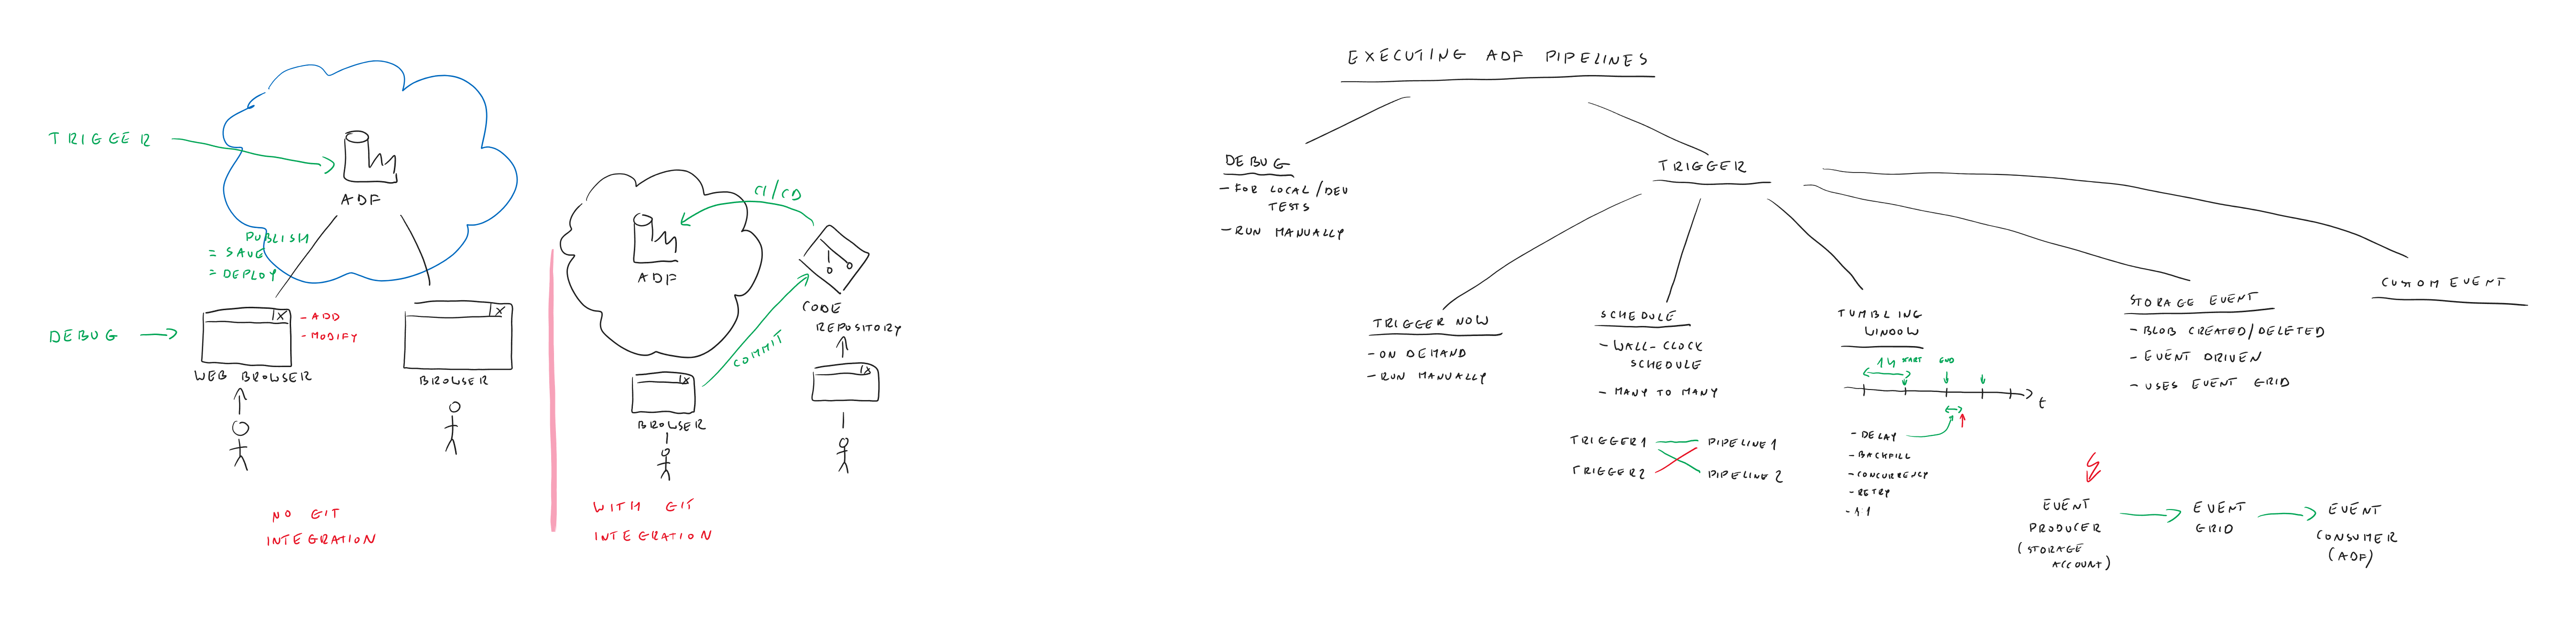 TRIGGER
ADF
PUBLISH
= SAVE
= DEPLOY
DEBUG
X
- ADD
- MODIFY
WEB BROWSER
X
BROWSER
NO GIT
INTEGRATION
CI/CD
ADF
CODE
REPOSITORY
COMMIT
X
BROWSER
X
WITH GIT
INTEGRATION
EXECUTING ADF PIPELINES
DEBUG
- FOR LOCAL/DEV
TESTS
- RUN MANUALLY
TRIGGER
TRIGGER NOW
- ON DEMAND
- RUN MANUALLY
SCHEDULE
- WALL-CLOCK
SCHEDULE
- MANY TO MANY
TRIGGER1 PIPELINE1
TRIGGER2 PIPELINE2
TUMBLING
WINDOW
1H START END
t
- DELAY
- BACKFILL
- CONCURRENCY
- RETRY
- 1:1
STORAGE EVENT
- BLOB CREATED/DELETED
- EVENT DRIVEN
- USES EVENT GRID
EVENT
PRODUCER
(STORAGE
ACCOUNT)
EVENT
GRID
EVENT
CONSUMER
(ADF)
CUSTOM EVENT